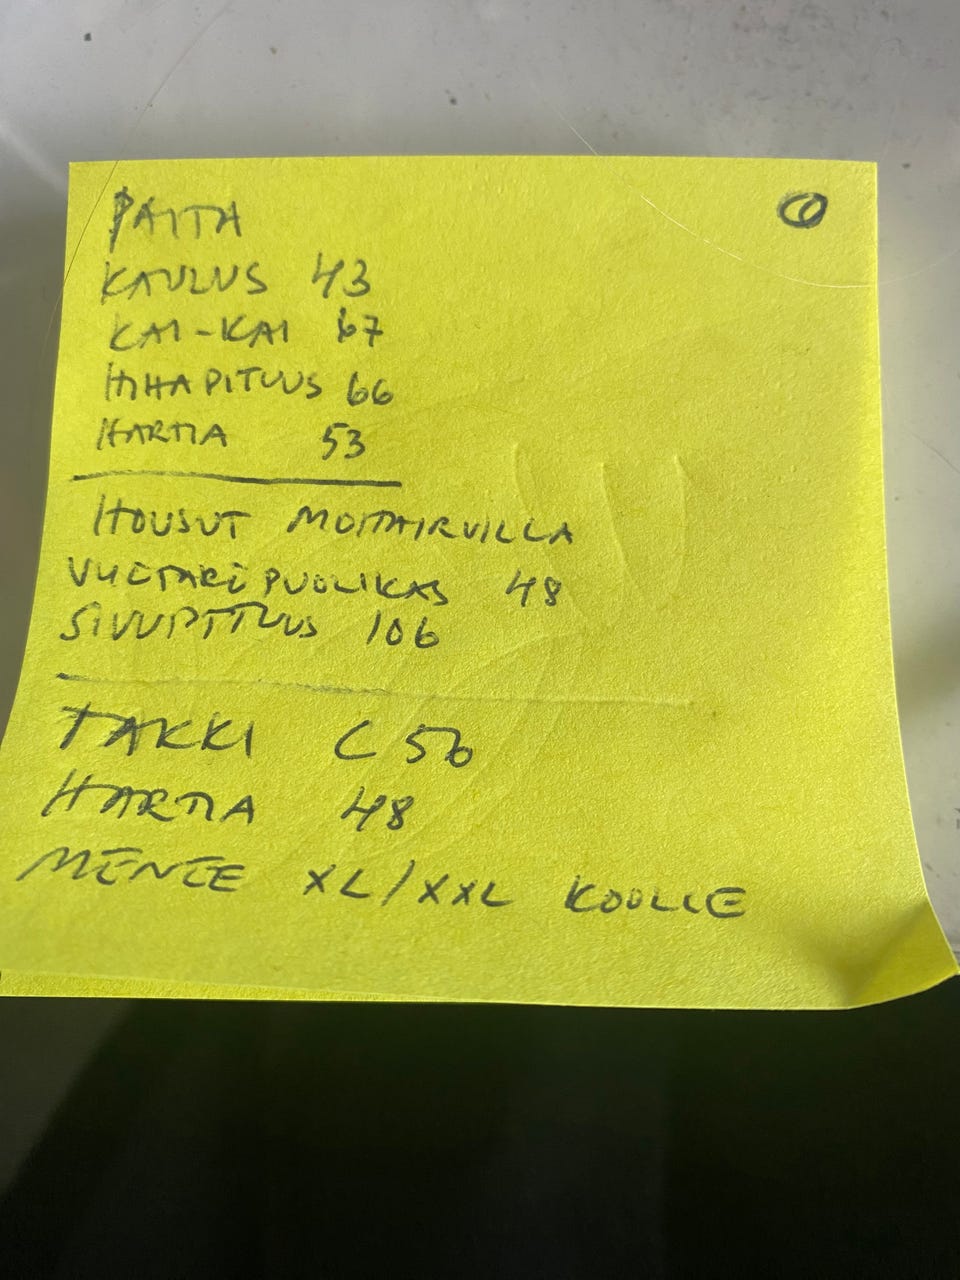 PAITA
KAULUS 43
KAI-KAI 67
HIHAPITUUS 66
HARTIA 53
HOUSUT MOHAIRVILLA
VYÖTARÖPUOLIKAS 48
SIVUPITUUS 106
TAKKI C 56
HARTIA 48
MENEE XL/XXL KOOLLE